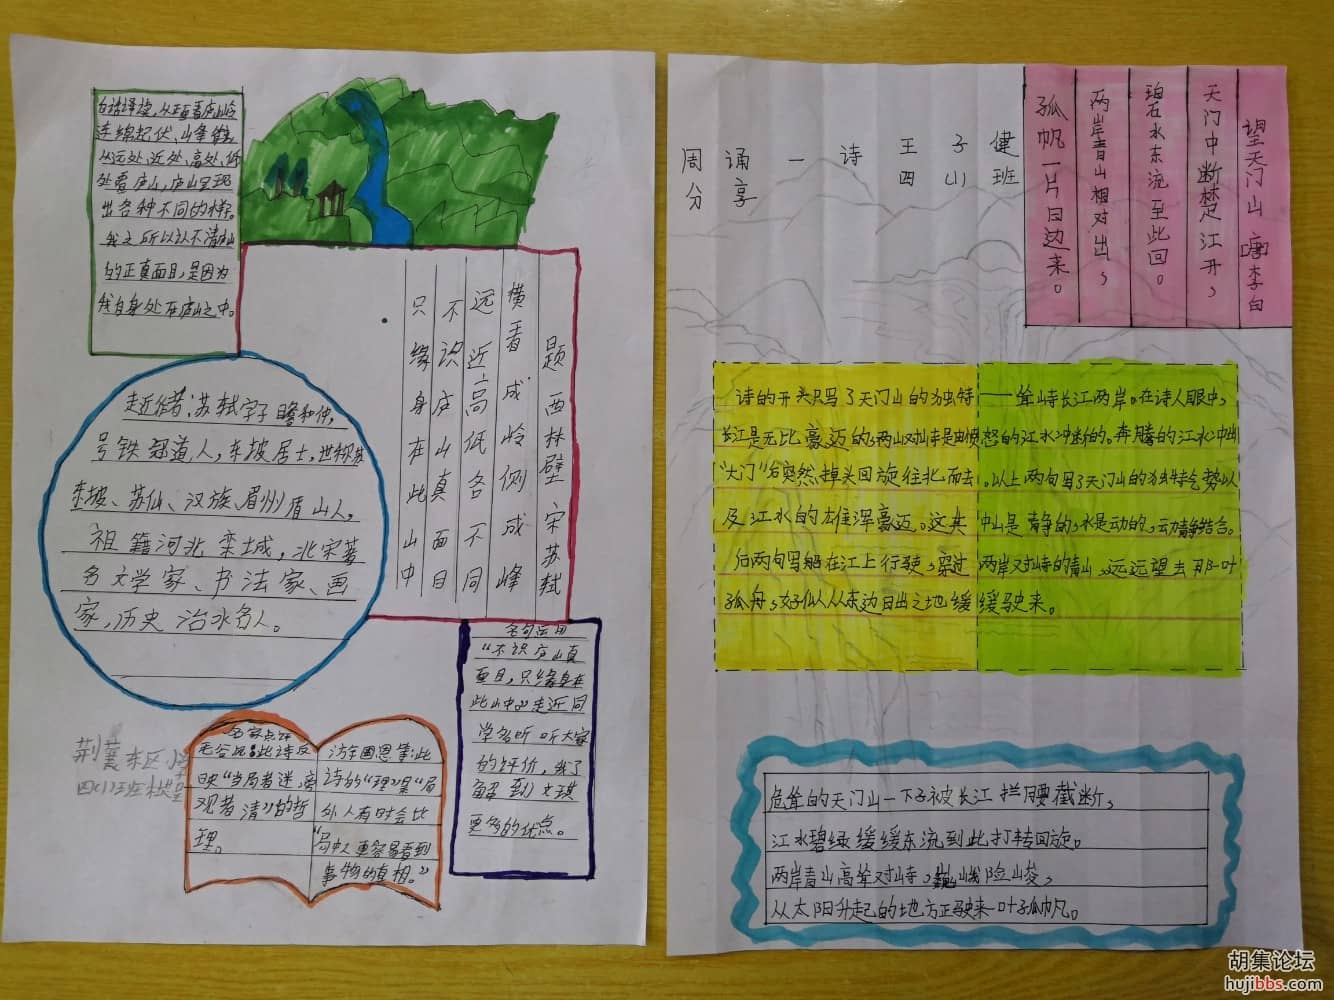 白话译文,从正面看庐山岭
连绵起伏、山峰耸立
从远处、近处、高处、低
处看庐山,庐山呈现
出各种不同的样。
我之所以认不清庐山
的正真面目,是因为
我自身处在庐山之中。
题西林壁 宋 苏轼
横看成岭侧成峰
远近高低各不同
不识庐山真面目
只缘身在此山中
走近作者:苏轼字子瞻和仲,
号铁冠道人,东坡居士,世称苏
东坡、苏仙、汉族、眉州眉山人,
祖籍河北栾城,北宋著
名文学家、书法家、画
家,历史治水名人。
名句运用
“不识庐山真
面目,只缘身在
此山中”走近同
学多听听大家
的评价,我了
解到
更多的优点。
名家点评
此诗反
映“当局者迷,旁
观者清”的哲
理。
此
诗的“理”是“局
外人有时会比
局中人更容易看到
事物的真相。”
荆襄东区小学
望天门山 唐 李白
天门中断楚江开,
碧水东流至此回。
两岸青山相对出,
孤帆一片日边来。
周诵一诗 王子健
分享 四(1)班
诗的开头只写了天门山的独特——耸峙长江两岸。在诗人眼中,
长江是无比豪迈的,两山对峙是由愤怒的江水冲断的。奔腾的江水冲出
“大门”后突然掉头回旋往北而去。以上两句写了天门山的独特气势以
及江水的雄浑豪迈。这其中山是静的,水是动的,动静结合。
后两句写船在江上行驶,穿过两岸对峙的青山,远远望去那一叶
孤舟,好似从东边日出之地缓缓驶来。
危耸的天门山一下子被长江拦腰截断,
江水碧绿缓缓东流到此打转回旋。
两岸青山高耸对峙,险峻,
从太阳升起的地方正驶来一叶孤帆。
胡集论坛
hujibbs.com